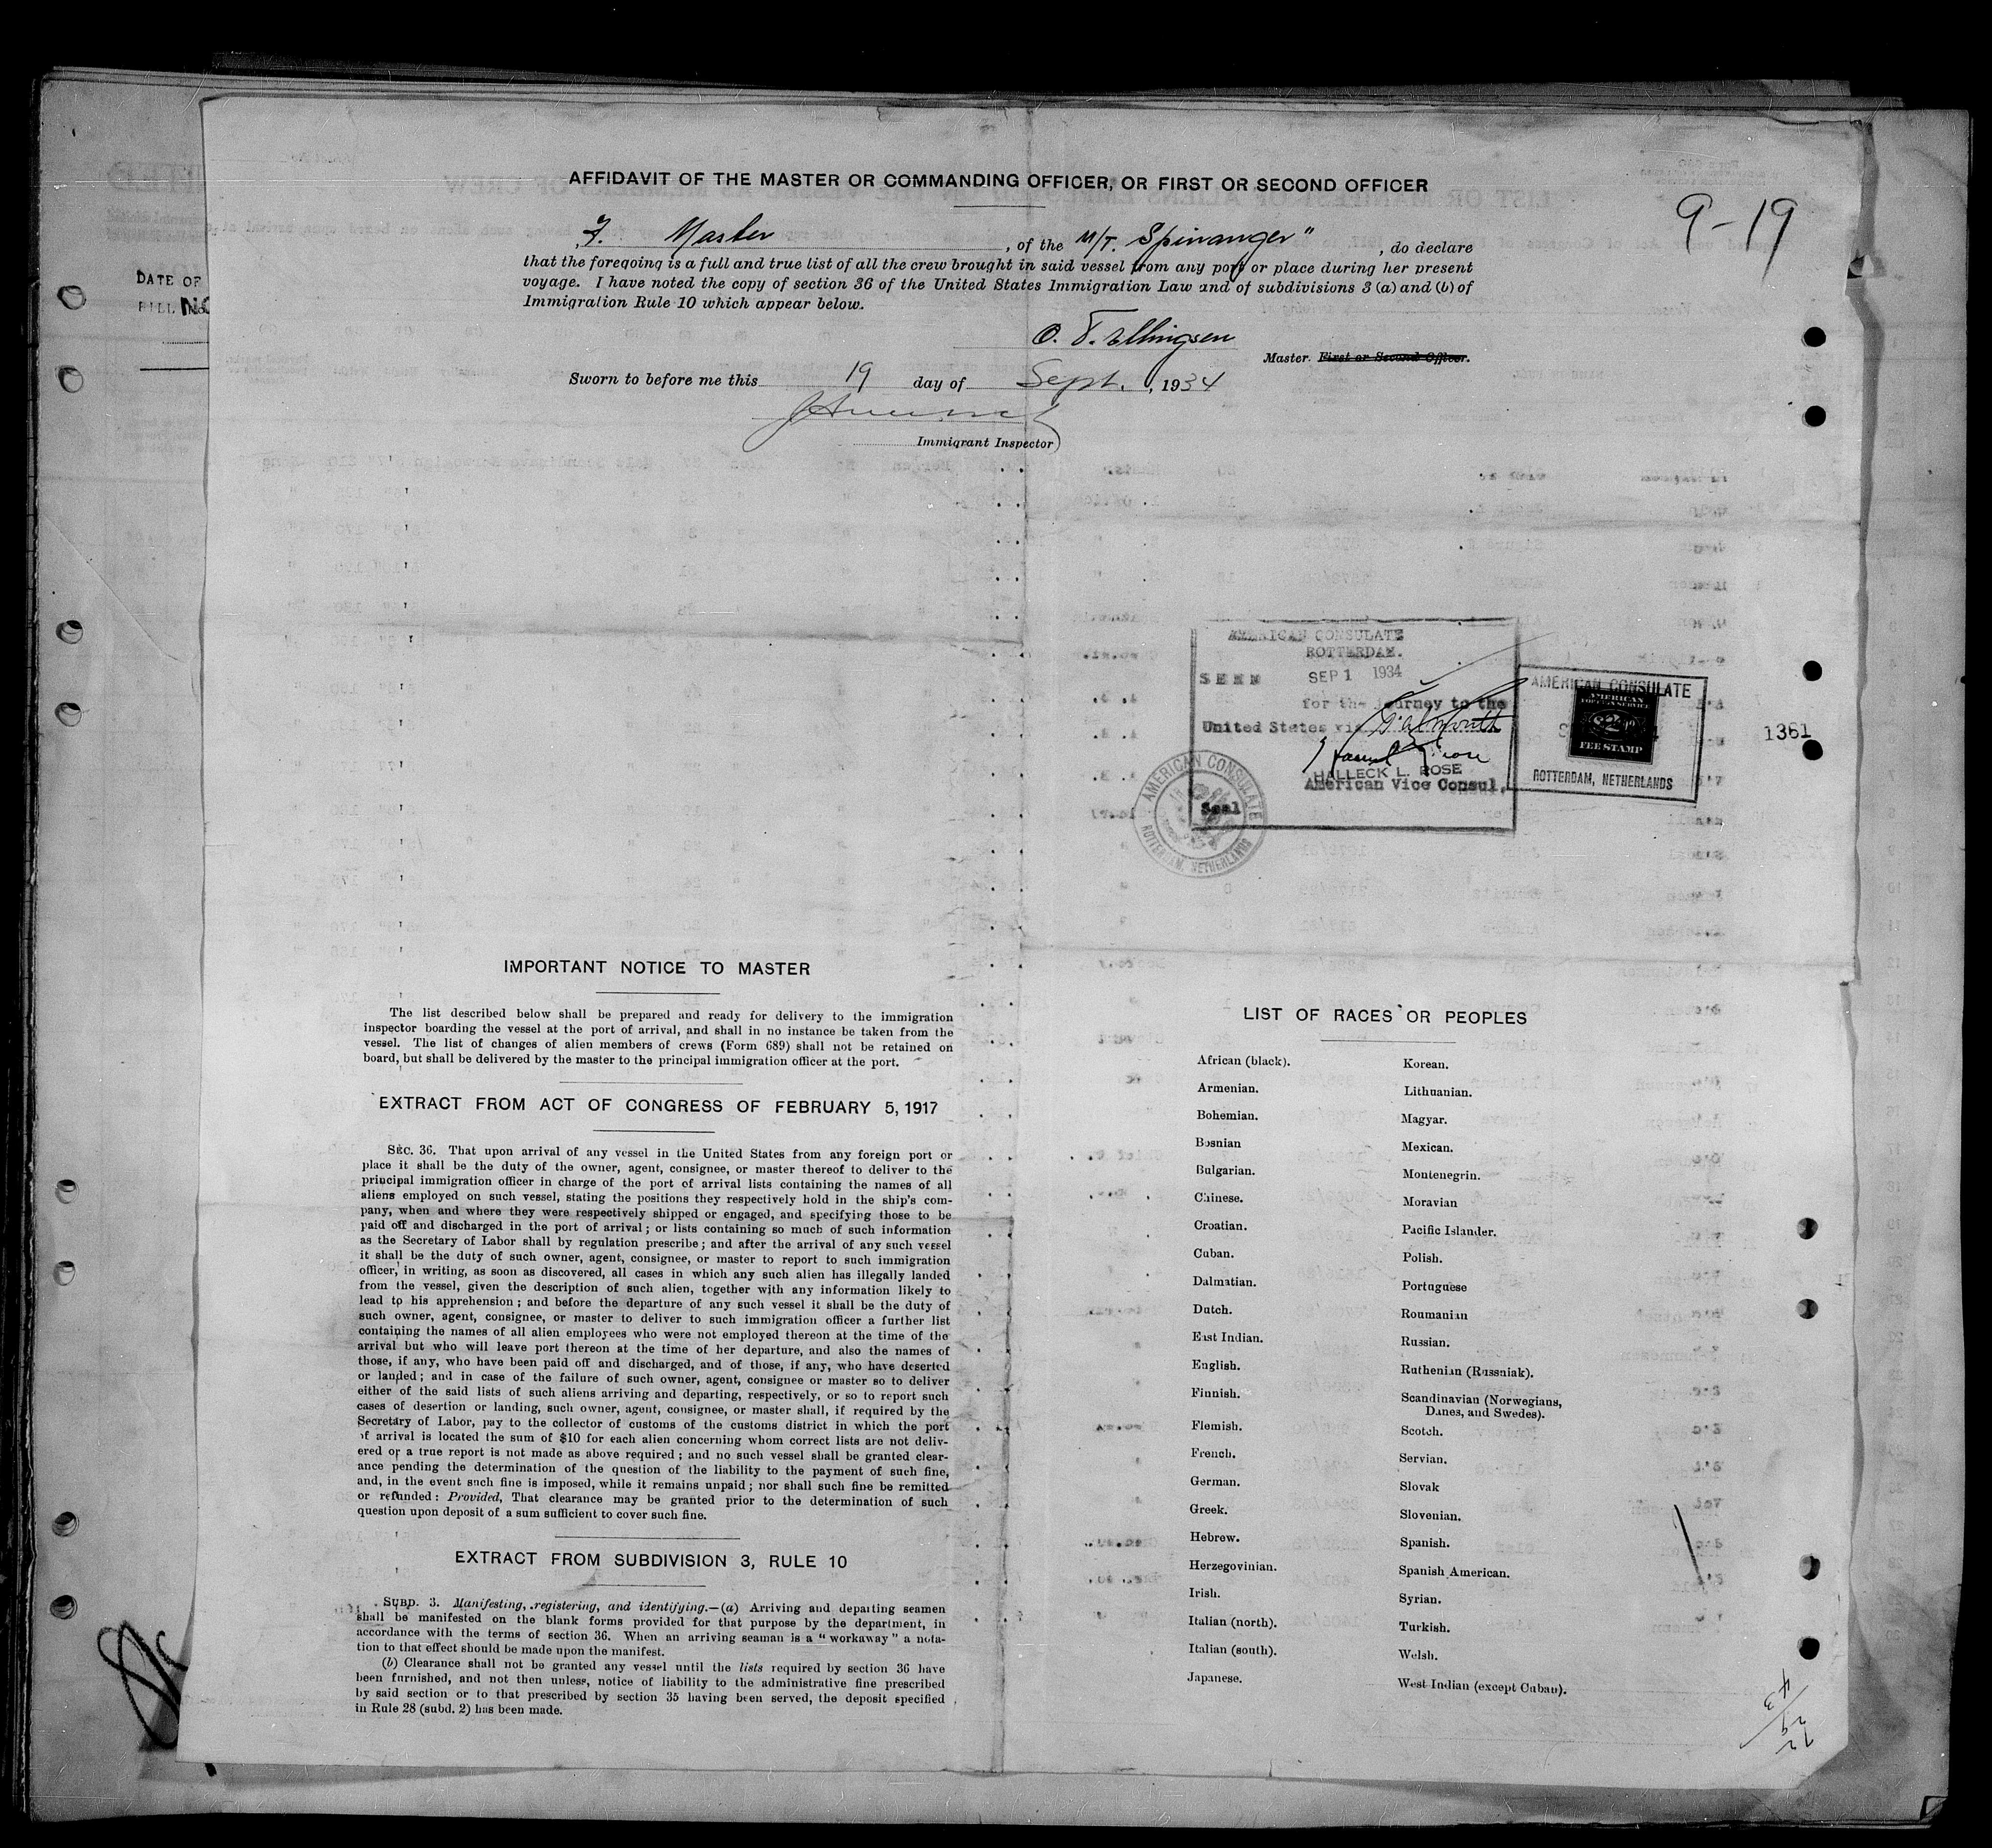 AFFIDAVIT OF THE MASTER OR COMMANDING OFFICER, OR FIRST OR SECOND OFFICER
9-19
I. Master, of the M/T. Spinanger", do declare
that the foregoing is a full and true list of all the crew brought in said vessel from any port or place during her present
voyage. I have noted the copy of section 36 of the United States Immigration Law and of subdivisions 3 (a) and (b) of
Immigration Rule 10 which appear below.
O. T. Ellingsen
Master. First or Second Officer.
Sworn to before me this 19 day of Sept., 1934
Immigrant Inspector
DATE OF
AMERICAN CONSULATE
ROTTERDAM.
SEEN SEP 1 1934
for the journey to the
United States via Falmouth
HALLECK L. ROSE
American Vice Consul.
Seal
AMERICAN CONSULATE
ROTTERDAM, NETHERLANDS
AMERICAN CONSULATE
AMERICAN
FOREIGN SERVICE
$2
FEE STAMP
ROTTERDAM, NETHERLANDS
1361
IMPORTANT NOTICE TO MASTER
The list described below shall be prepared and ready for delivery to the immigration
inspector boarding the vessel at the port of arrival, and shall in no instance be taken from the
vessel. The list of changes of alien members of crews (Form 689) shall not be retained on
board, but shall be delivered by the master to the principal immigration officer at the port.
EXTRACT FROM ACT OF CONGRESS OF FEBRUARY 5, 1917
SEC. 36. That upon arrival of any vessel in the United States from any foreign port or
place it shall be the duty of the owner, agent, consignee, or master thereof to deliver to the
principal immigration officer in charge of the port of arrival lists containing the names of all
aliens employed on such vessel, stating the positions they respectively hold in the ship's com-
pany, when and where they were respectively shipped or engaged, and specifying those to be
paid off and discharged in the port of arrival; or lists containing so much of such information
as the Secretary of Labor shall by regulation prescribe; and after the arrival of any such vessel
it shall be the duty of such owner, agent, consignee, or master to report to such immigration
officer, in writing, as soon as discovered, all cases in which any such alien has illegally landed
from the vessel, given the description of such alien, together with any information likely to
lead to his apprehension; and before the departure of any such vessel it shall be the duty of
such owner, agent, consignee, or master to deliver to such immigration officer a further list
containing the names of all alien employees who were not employed thereon at the time of the
arrival but who will leave port thereon at the time of her departure, and also the names of
those, if any, who have been paid off and discharged, and of those, if any, who have deserted
or landed; and in case of the failure of such owner, agent, consignee or master so to deliver
either of the said lists of such aliens arriving and departing, respectively, or so to report such
cases of desertion or landing, such owner, agent, consignee, or master shall, if required by the
Secretary of Labor, pay to the collector of customs of the customs district in which the port
of arrival is located the sum of $10 for each alien concerning whom correct lists are not deliv-
ered or a true report is not made as above required; and no such vessel shall be granted clear-
ance pending the determination of the question of the liability to the payment of such fine,
and, in the event such fine is imposed, while it remains unpaid; nor shall such fine be remitted
or refunded: Provided, That clearance may be granted prior to the determination of such
question upon deposit of a sum sufficient to cover such fine.
EXTRACT FROM SUBDIVISION 3, RULE 10
SUBD. 3. Manifesting, registering, and identifying.—(a) Arriving and departing seamen
shall be manifested on the blank forms provided for that purpose by the department, in
accordance with the terms of section 36. When an arriving seaman is a "workaway" a nota-
tion to that effect should be made upon the manifest.
(b) Clearance shall not be granted any vessel until the lists required by section 36 have
been furnished, and not then unless, notice of liability to the administrative fine prescribed
by said section or to that prescribed by section 35 having been served, the deposit specified
in Rule 28 (subd. 2) has been made.
LIST OF RACES OR PEOPLES
African (black).
Armenian.
Bohemian.
Bosnian
Bulgarian.
Chinese.
Croatian.
Cuban.
Dalmatian.
Dutch.
East Indian.
English.
Finnish.
Flemish.
French.
German.
Greek.
Hebrew.
Herzegovinian.
Irish.
Italian (north).
Italian (south).
Japanese.
Korean.
Lithuanian.
Magyar.
Mexican.
Montenegrin.
Moravian
Pacific Islander.
Polish.
Portuguese
Roumanian
Russian.
Ruthenian (Russniak).
Scandinavian (Norwegians,
Danes, and Swedes).
Scotch.
Servian.
Slovak
Slovenian.
Spanish.
Spanish American.
Syrian.
Turkish.
Welsh.
West Indian (except Cuban).